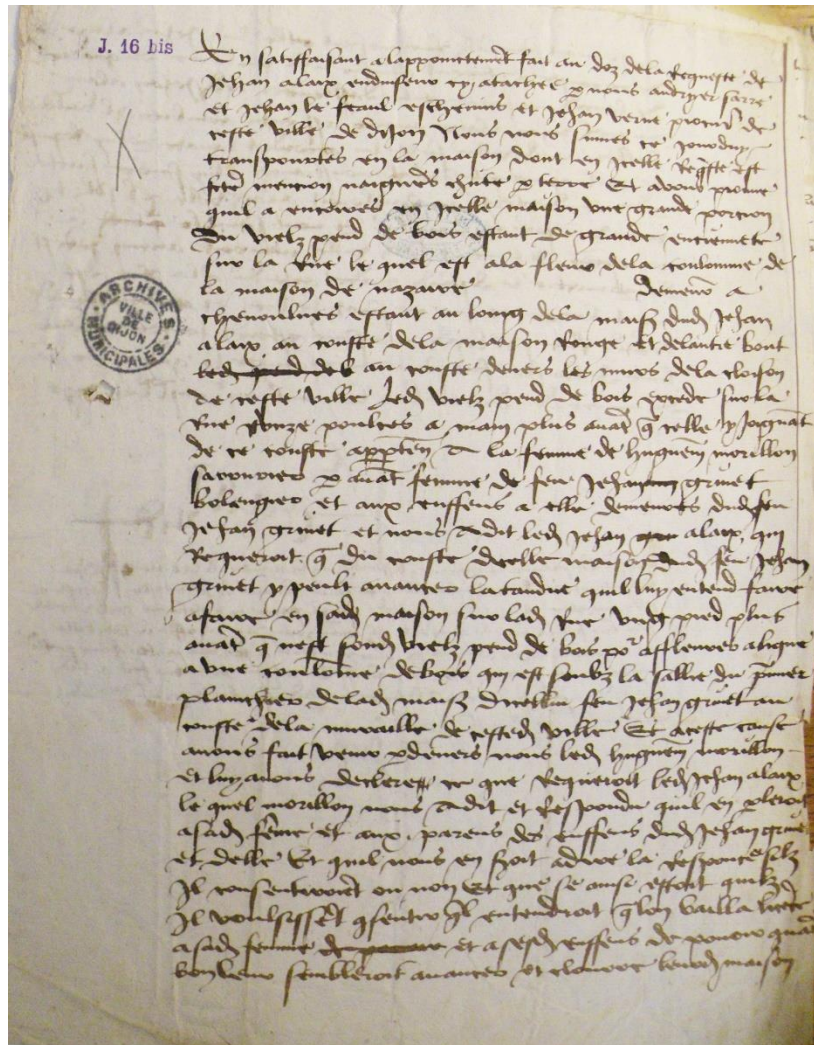 J. 16 bis
En satisfaisant a lappointement fait au doz de la Requeste de
Jehan alaix cy atachee p nous andryer sarre
et Jehan le feaul eschevins et Jehan verne procur de
ceste ville de dijon Nous nous sumes ce jourduy
transpourtes en la maison dont en Icelle Reqste est
fcte mencion naigueres chute p terre Et avons
quil a encores en Icelle maison une grande porcion
du vielz pend de bois estant de grande
sur la Rue le quel est a la fleur de la coulomme de
la maison de demeur a
chenoulves estant au loing de la maison dud Jehan
alaix au couste de la maison Rouge et
led pend de b au couste devers les murs de la cloison
de ceste ville led vielz pend de bois excede sur la
Rue unze poulces a main plus avat q celle y joignat
de ce couste apptem a la femme de huguem morillon
p avat femme de feu Jehan gruet
bolengier et aux enffens a elle demeures dud feu
Jehan gruet et nous a dit led Jehan alaix qui
Requeroit q du couste dicelle maison dud feu Jehan
gruet y peult avancer quil luy entend faire
a faire en sad maison sur lad Rue ung pied plus
avat q nest sond vielz pend de bois po affleurer a ligne
a une coulonne de bois qui est soubz la saillie du pmier
planchier de lad maison dicellui feu Jehan gruet au
couste de la muraille de cested ville Et a ceste cause
avons fait venir p devers nous led huguem morillon
et luy avons declere ce que Requeroit led Jehan alaix
le quel morillon nous a dit et Respondu quil en pleroit
a sad feme et aux parens des enffens dud Jehan gruet
et delle Et quil nous en feroit a dire la Responce silz
Il consentiroiet ou non Et que se ainsi estoit quilz
Il voulsisset qsentir ql entendroit q lon bailla licece
a sad femme et a sesd enffens de povoir quat
bon leur sembleroit avancer et leurd maison
ARCHIVES MUNICIPALES
VILLE DE DIJON